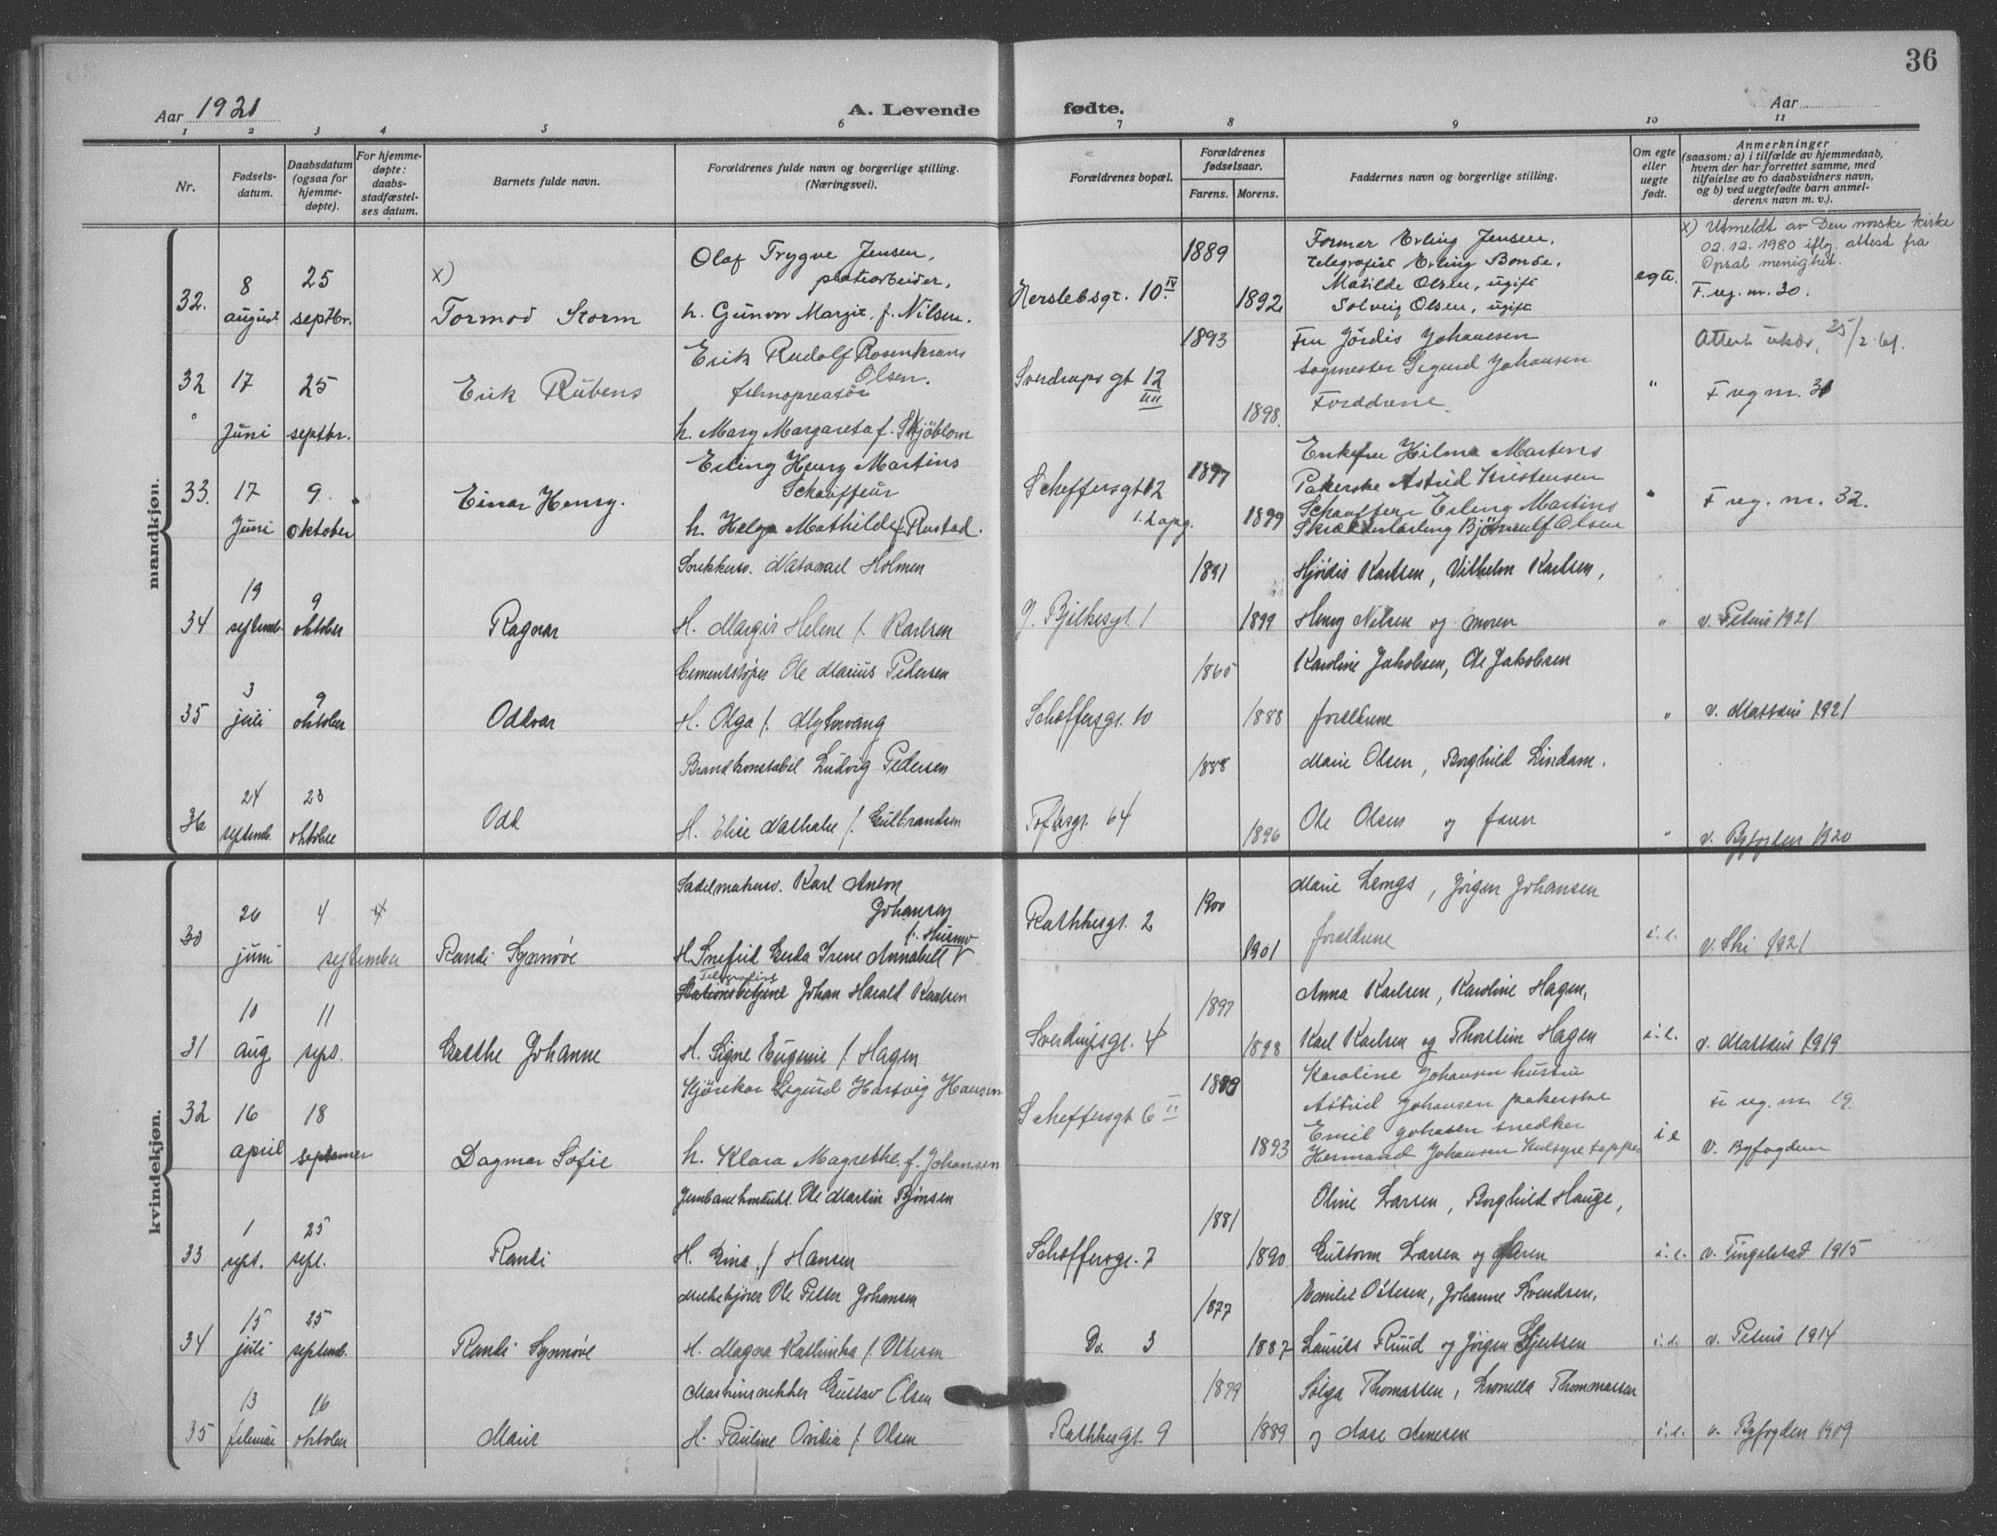 36
Aar 1921
A. Levende fødte.
Aar
1 2 3 4 5 6 7 8 9 10 11
Nr.
Fødsels-
datum.
Daabsdatum
(ogsaa for
hjemme-
døpte).
For hjemme-
døpte:
daabs-
stadfæstel-
ses datum.
Barnets fulde navn.
Forældrenes fulde navn og borgerlige stilling.
(Næringsvei).
Forældrenes bopæl.
Forældrenes
fødselsaar.
Farens. Morens.
Faddernes navn og borgerlige stilling.
Om egte
eller
uegte
født.
Anmerkninger
(saasom: a) i tilfælde av hjemmedaab,
hvem der har forrettet samme, med
tilføielse av to daabsvidners navn,
og b) ved uegtefødte barn anmel-
derens navn m. v.).
mandkjøn.
32.
8
august
25
septbr.
x)
Tormod Storm
Olaf Trygve Jensen,
platearbeider,
h. Gunvor Margit f. Nilsen.
Herslebsgt. 10 IV
1889
1892
Former Erling Jensen,
Telegrafist Erling Bonde,
Matilde Olsen, ugift
Solveig Olsen, ugift
egte.
x) Utmeldt av Den norske kirke
02.12.1980 iflg. attest fra
Opsal menighet.
F. reg. nr. 30.
32
17
Juni
25
septbr.
Erik Rubens
Erik Rudolf Rosenkrans
Olsen.
filmopreatør
h. Mary Margareta f. Skjöblom
Sverdrups gt 12
IIII
1893
1898.
Fru Jördis Johansen
Sogmester Sigurd Johansen
Forældrene
"
Attest utstr. 25/2 61.
F reg nr. 31
33.
17
Juni
9
oktober
Einar Henry.
Erling Henry Martins
Schauffeur
h. Helga Mathilde f. Rustad.
Scheffersgt 12
1897
1899
Enkefru Hilma Martens
Pakerske Astrid Kristensen
Schauffeur Erling Martins
Bjørnulf Olsen
"
F reg. nr. 32.
34
19
septemb.
9
oktober
Ragnar
Natanael Holmen
H. Margit Helene f. Karlsen
J. Bjelkesgt. 1
1891
1899
Hjördis Karlsen, Vilhelm Karlsen,
Henry Nilsen og moren
"
v. Petrus 1921
35
3
juli
9
oktober
Oddvar
Cementstøper Ole Marius Pedersen
H. Olga f. Myhrvang
Scheffersgt. 10
1865
1888
Karoline Jakobsen, Ole Jakobsen
forældrene
"
v. Mattæus 1921
36
24
septemb.
23
oktober
Odd
Brandkonstabel Ludvig Pedersen
H. Elise Nathalie f. Gulbrandsen
Toftesgt. 64
1888
1896
Marie Olsen, Borghild Lindam.
Ole Olsen og faren
"
v. Byfogden 1920
kvindekjøn.
30
20
juni
4
september
4
Randi Synnøve
Sadelmakersv. Karl Anton
Johansen
H. Snefrid Gerda Irene Annabett
Rathkesgt. 2
1900
1901
Marie Lengs, Jørgen Johansen
forældrene
i.e.
v. Ski 1921
31
10
aug
11
sept.
Grethe Johanne
Telegrafist
Stationsbetjent Johan Harald Karlsen
H. Signe Eugenie f. Hagen
Sverdrupsgt. 4
1897
1898
Anna Karlsen, Karoline Hagen,
Karl Karlsen og Thorstein Hagen
i.e.
v. Mattæus 1919
32
16
april
18
Dagmar Sofie
Kjørekar Sigurd Hartvig Hansen
h. Klara Magrethe f. Johansen
Scheffersgt 6 II
1893
Karoline Johansen hustru
Astrid Johansen pakerske
Emil Johasen snedker
Hermand Johansen Kulsyre tapper
i e
F reg. nr 19.
v. Byfogden
33
1
sept.
25
sept.
Randi
Ole Martin Bjönsen
H. Gina f. Hansen
Scheffersgt. 7
1881
1890
Oline Larsen, Borghild Hauge,
Gustorm Larsen og faren
i.e.
v. Tingelstad 1915
34
15
juli
25
septemb.
Randi Synnøve
Melkekjører Ole Petter Johansen
H. Magna Kathinka f. Ottesen
Do. 3
1877
1887
Emilie Ottesen, Johanne Svendsen,
Laurits Ruud og Jørgen Skjertsen
i.e.
v. Petrus 1914
35
13
februar
16
oktober
Marie
Maskinsnekker Gustav Olsen
H. Pauline Ovidia f. Olsen
Rathkesgt. 9
1879
1889
Solga Thomassen, Leonella Thommassen
og Aase Arnesen
i.e.
v. Byfogden 1909